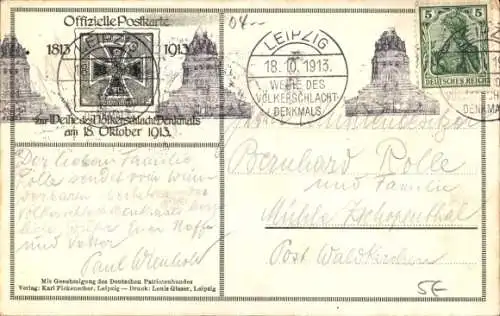 Offizielle Postkarte
1813 1913
zur Weihe des Völkerschlacht-Denkmals
am 18. Oktober 1913.
04.–
LEIPZIG
18.10.1913.
WEIHE DES
VÖLKERSCHLACHT-
DENKMALS.
5 5
DEUTSCHES REICH
Der lieben Familie
Rolle sendet vom wun-
derbaren
Völkerschlachtdenkmal
Euer Neffe
und Vetter
Paul Wienhold
Bernhard Rolle
und Familie
Mühle Zschopenthal
Post Waldkirchen
5E
Mit Genehmigung des Deutschen Patriotenbundes
Verlag: Karl Fickenscher, Leipzig — Druck: Louis Glaser, Leipzig